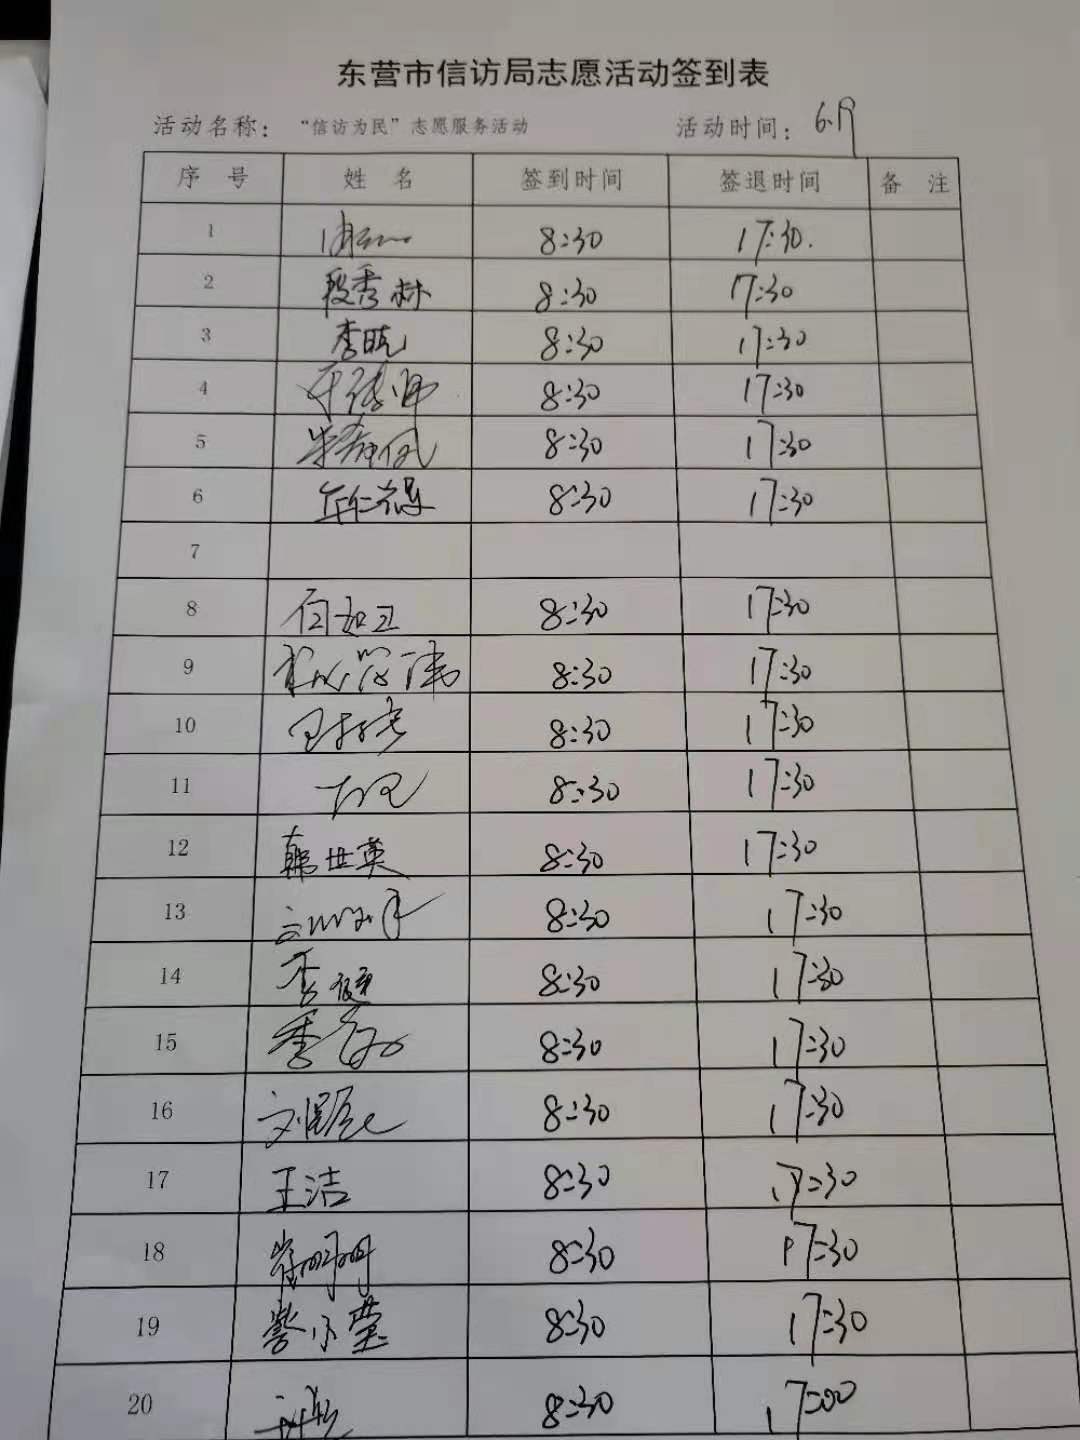 东营市信访局志愿活动签到表
活动名称：“信访为民”志愿服务活动 活动时间：6.月
序 号 姓 名 签到时间 签退时间 备 注
1 8:30 17:30.
2 段秀林 8:30 17:30
3 李晓 8:30 17:30
4 8:30 17:30
5 8:30 17:30
6 8:30 17:30
7
8 白如卫 8:30 17:30
9 8:30 17:30
10 8:30 17:30
11 8:30 17:30
12 韩世英 8:30 17:30
13 8:30 17:30
14 李健 8:30 17:30
15 8:30 17:30
16 8:30 17:30
17 王洁 8:30 17:30
18 8:30 17:30
19 8:30 17:30
20 8:30 17:00